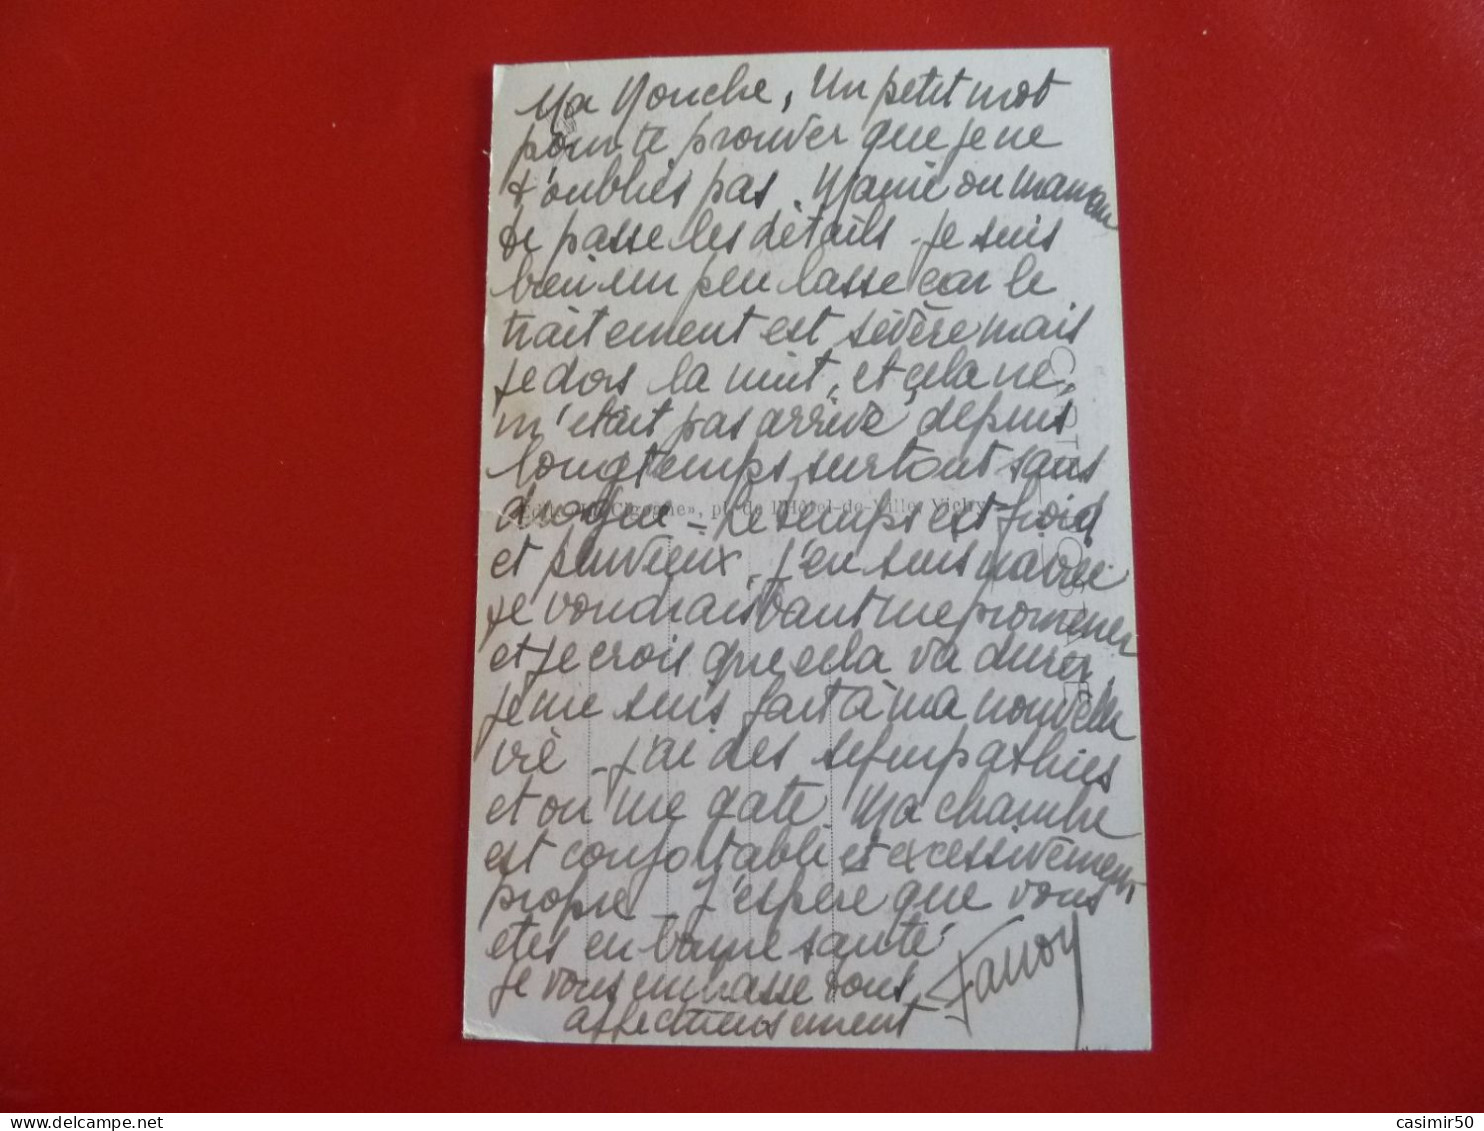 Ma Mouche, Un petit mot
pour te prouver que je ne
t'oublies pas. Mamie ou maman
te passe les détails. Je suis
bien un peu lasse car le
traitement est sévère mais
je dors la nuit, et cela ne
m'était pas arrivé depuis
longtemps surtout sans
drogue - Le temps est froid
et pluvieux. J'en suis navrée
je voudrais tant me promener
et je crois que cela va durer
je me suis fait à ma nouvelle
vie - J'ai des sympathies
et on me gate. Ma chambre
est confortable et excessivement
propre - J'espère que vous
etes en bonne santé
Je vous embrasse tous
affectueusement
Edit. «La Cigogne», pl. de l'Hôtel-de-Ville, Vichy
CARTE POSTALE
casimir50